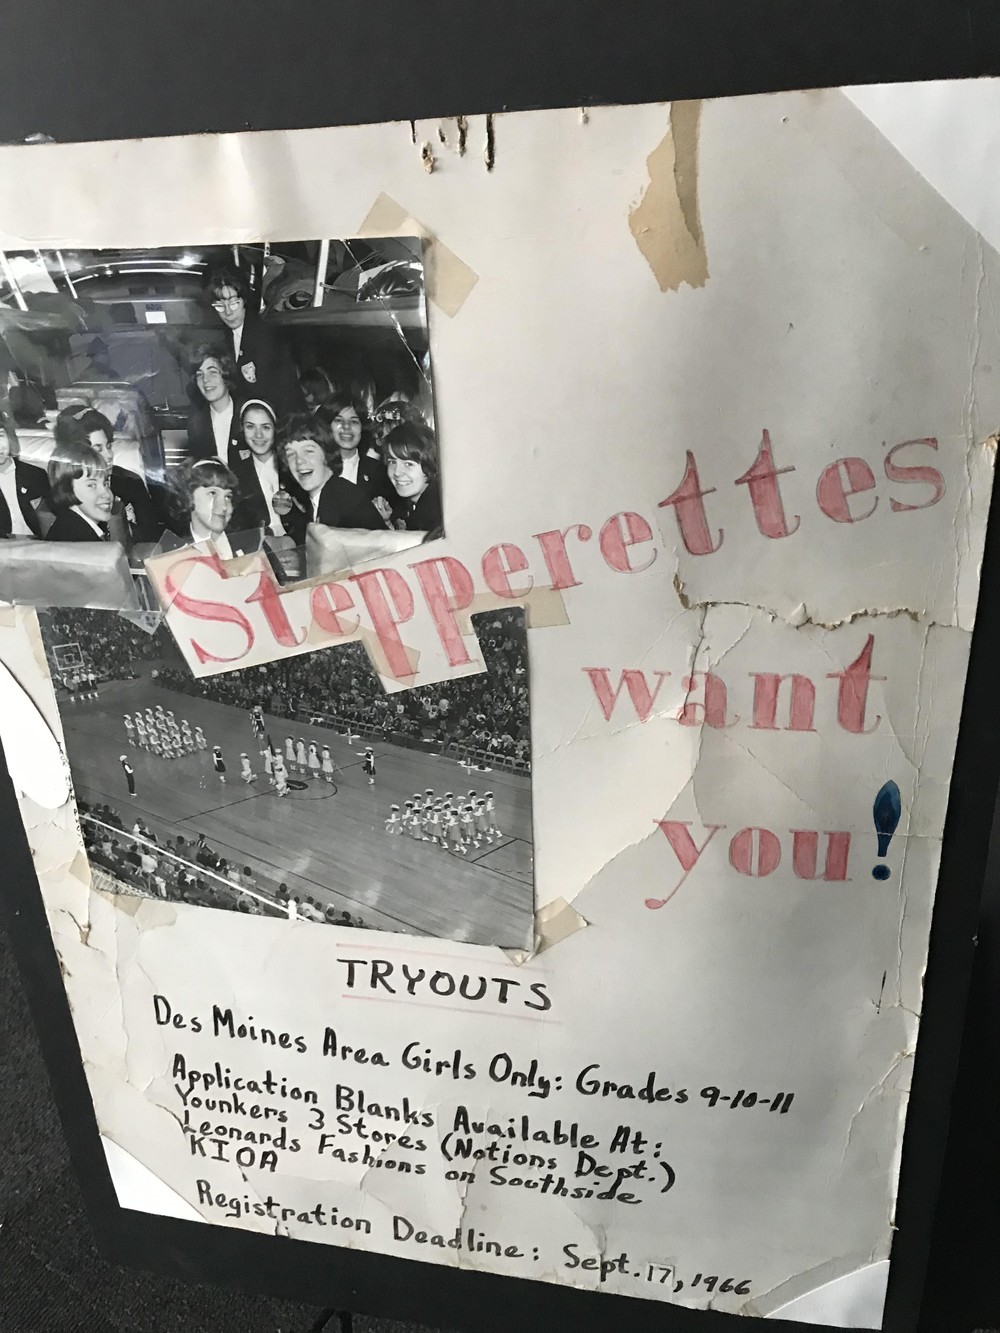 Stepperettes
want
you!
TRYOUTS
Des Moines Area Girls Only: Grades 9-10-11
Application Blanks Available At:
Younkers 3 Stores (Notions Dept.)
Leonards Fashions on Southside
KIOA
Registration Deadline: Sept. 17, 1966